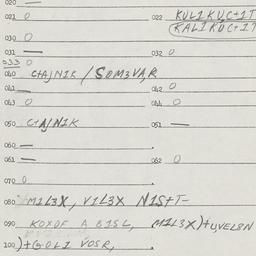 020 —
021 0 022 KUL1KUC+1T
030 0 (KAL1KUC+1T
031 — 032 0
033 0
040 C+AJN1K / SOM3VA,R
041 — 042 0
043 0 044 0
050 C+AJN1K 051 —
060 —
061 — 062 0
070 0
080 M1L3X, V1L3X N1S+T-
090 KOXOF A B1SL, M1L3X)+U,VEL8N
100 )+GOL1 VOSR,